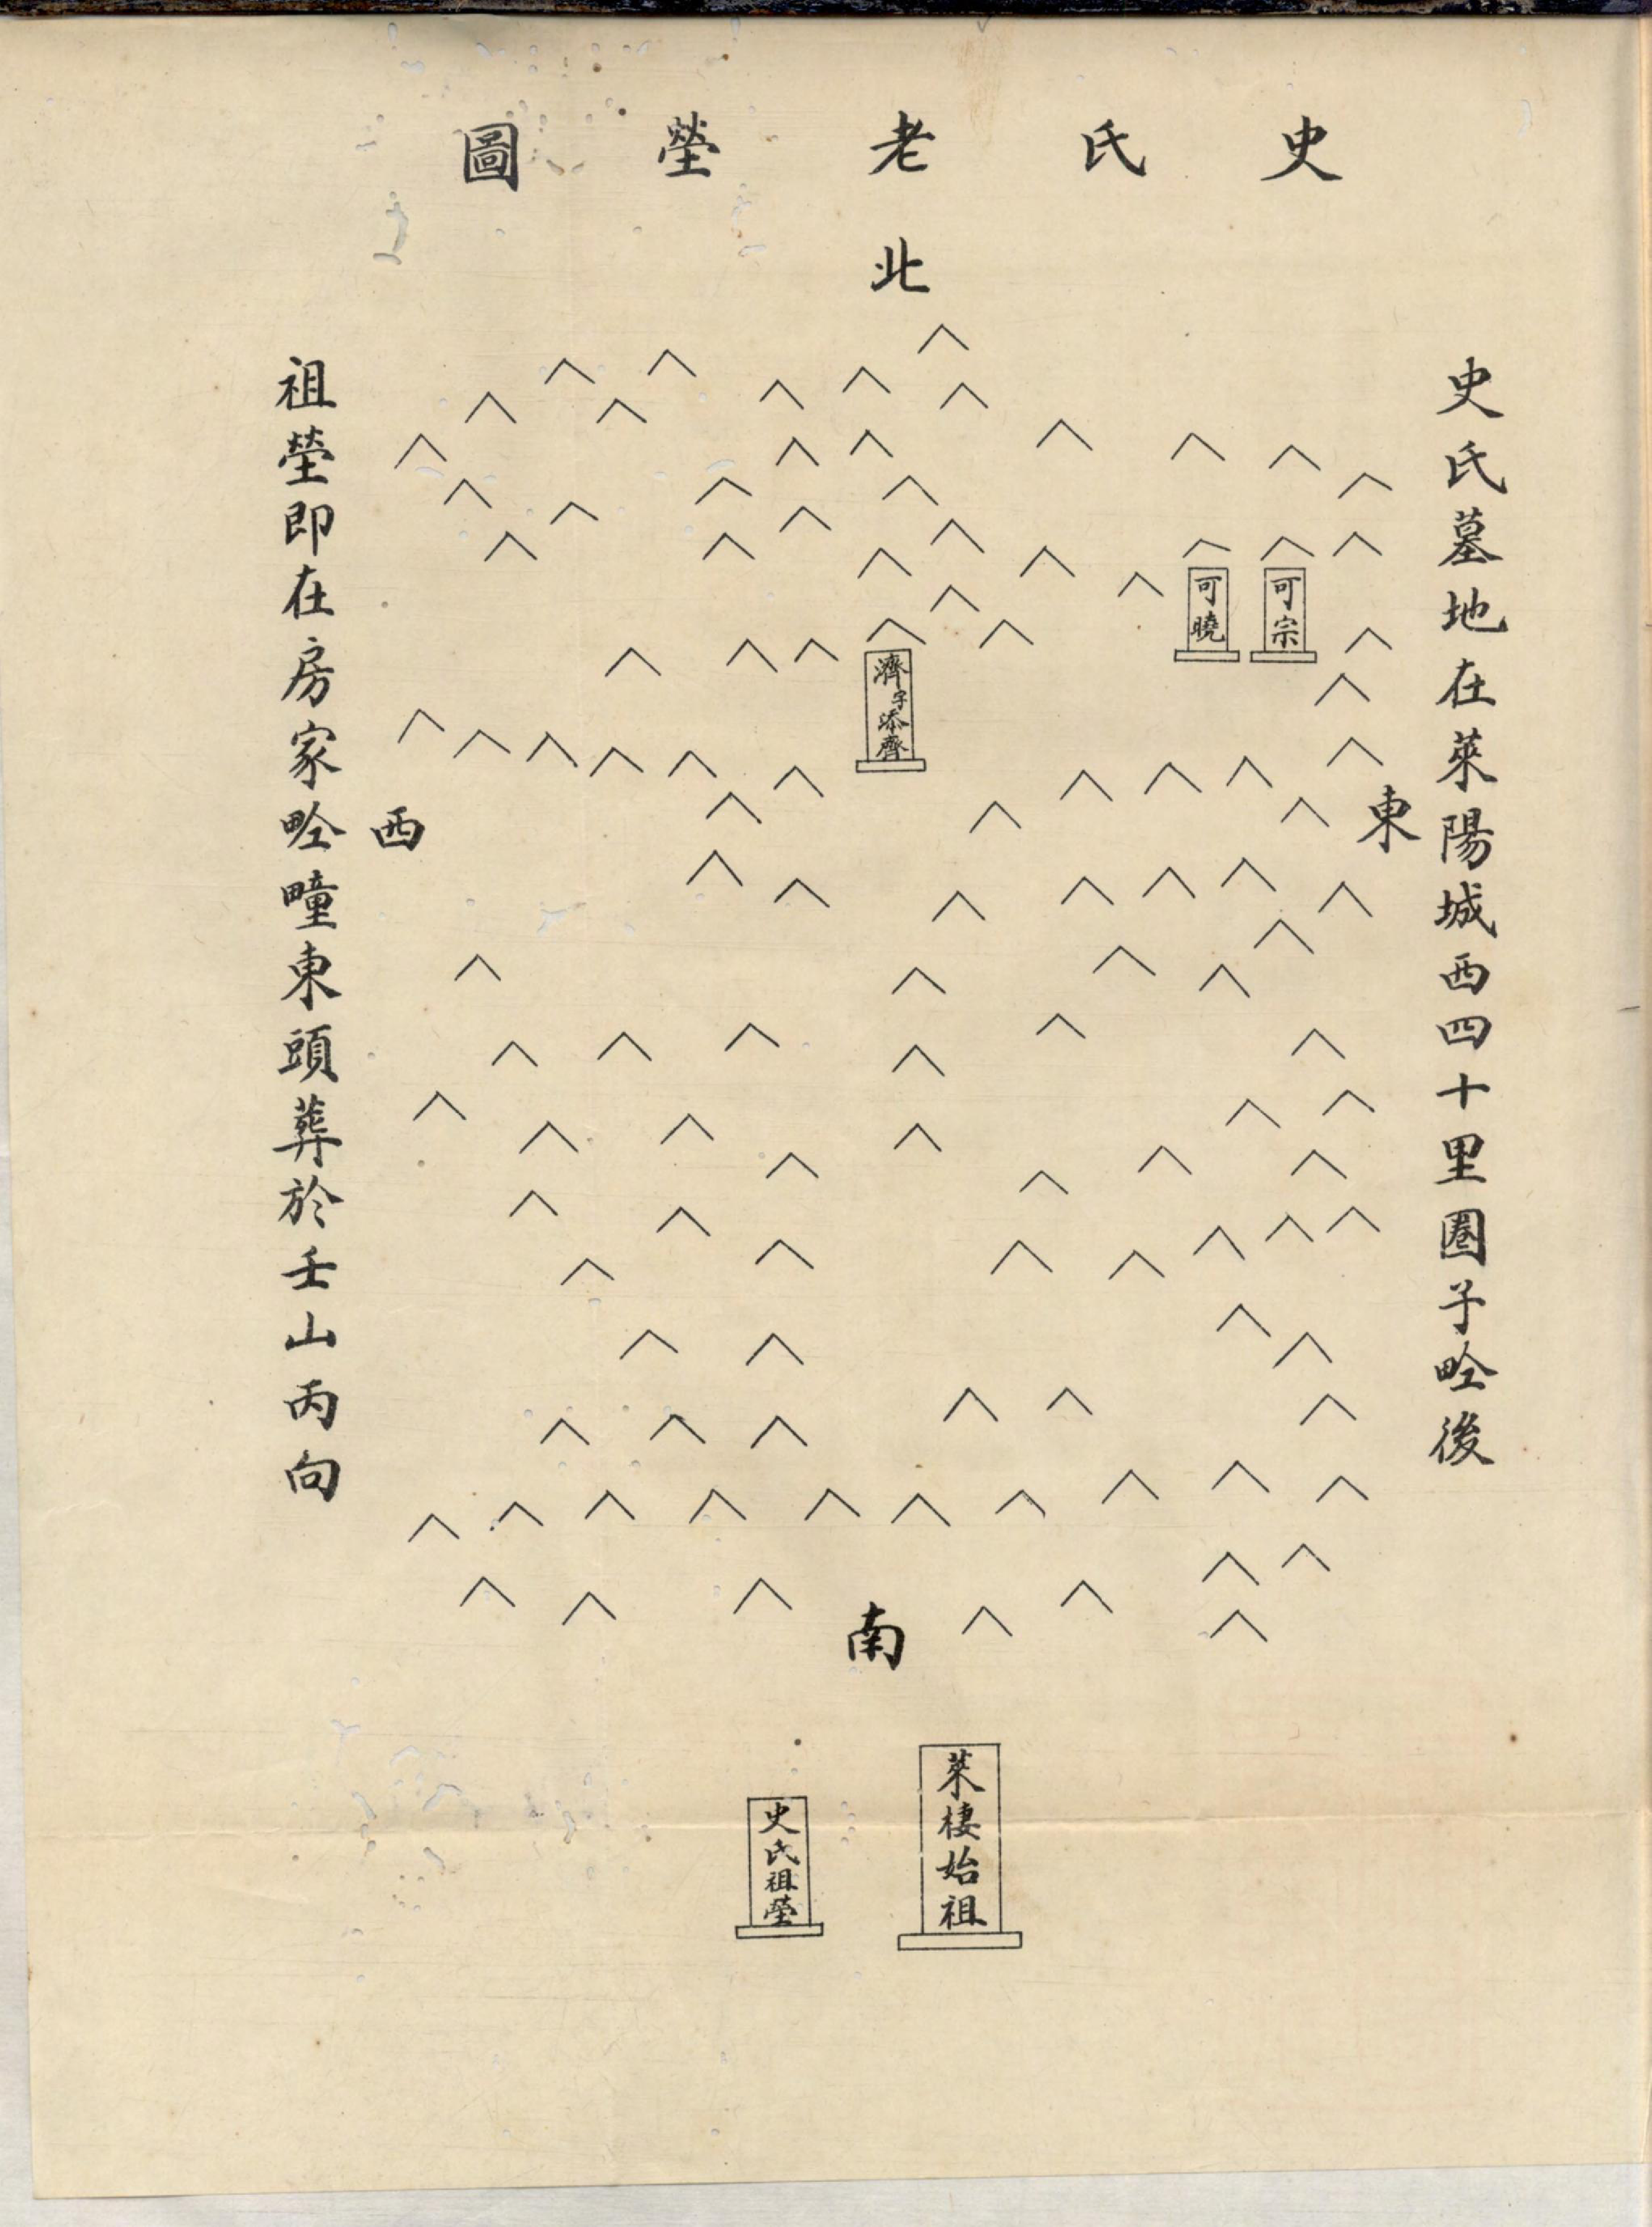 史氏老塋圖
北
史氏墓地在萊陽城西四十里圈子畍後
可宗
可曉
濟字添齊
東
西
祖塋即在房家畍疃東頭葬於壬山丙向
南
萊棲始祖
史氏祖塋